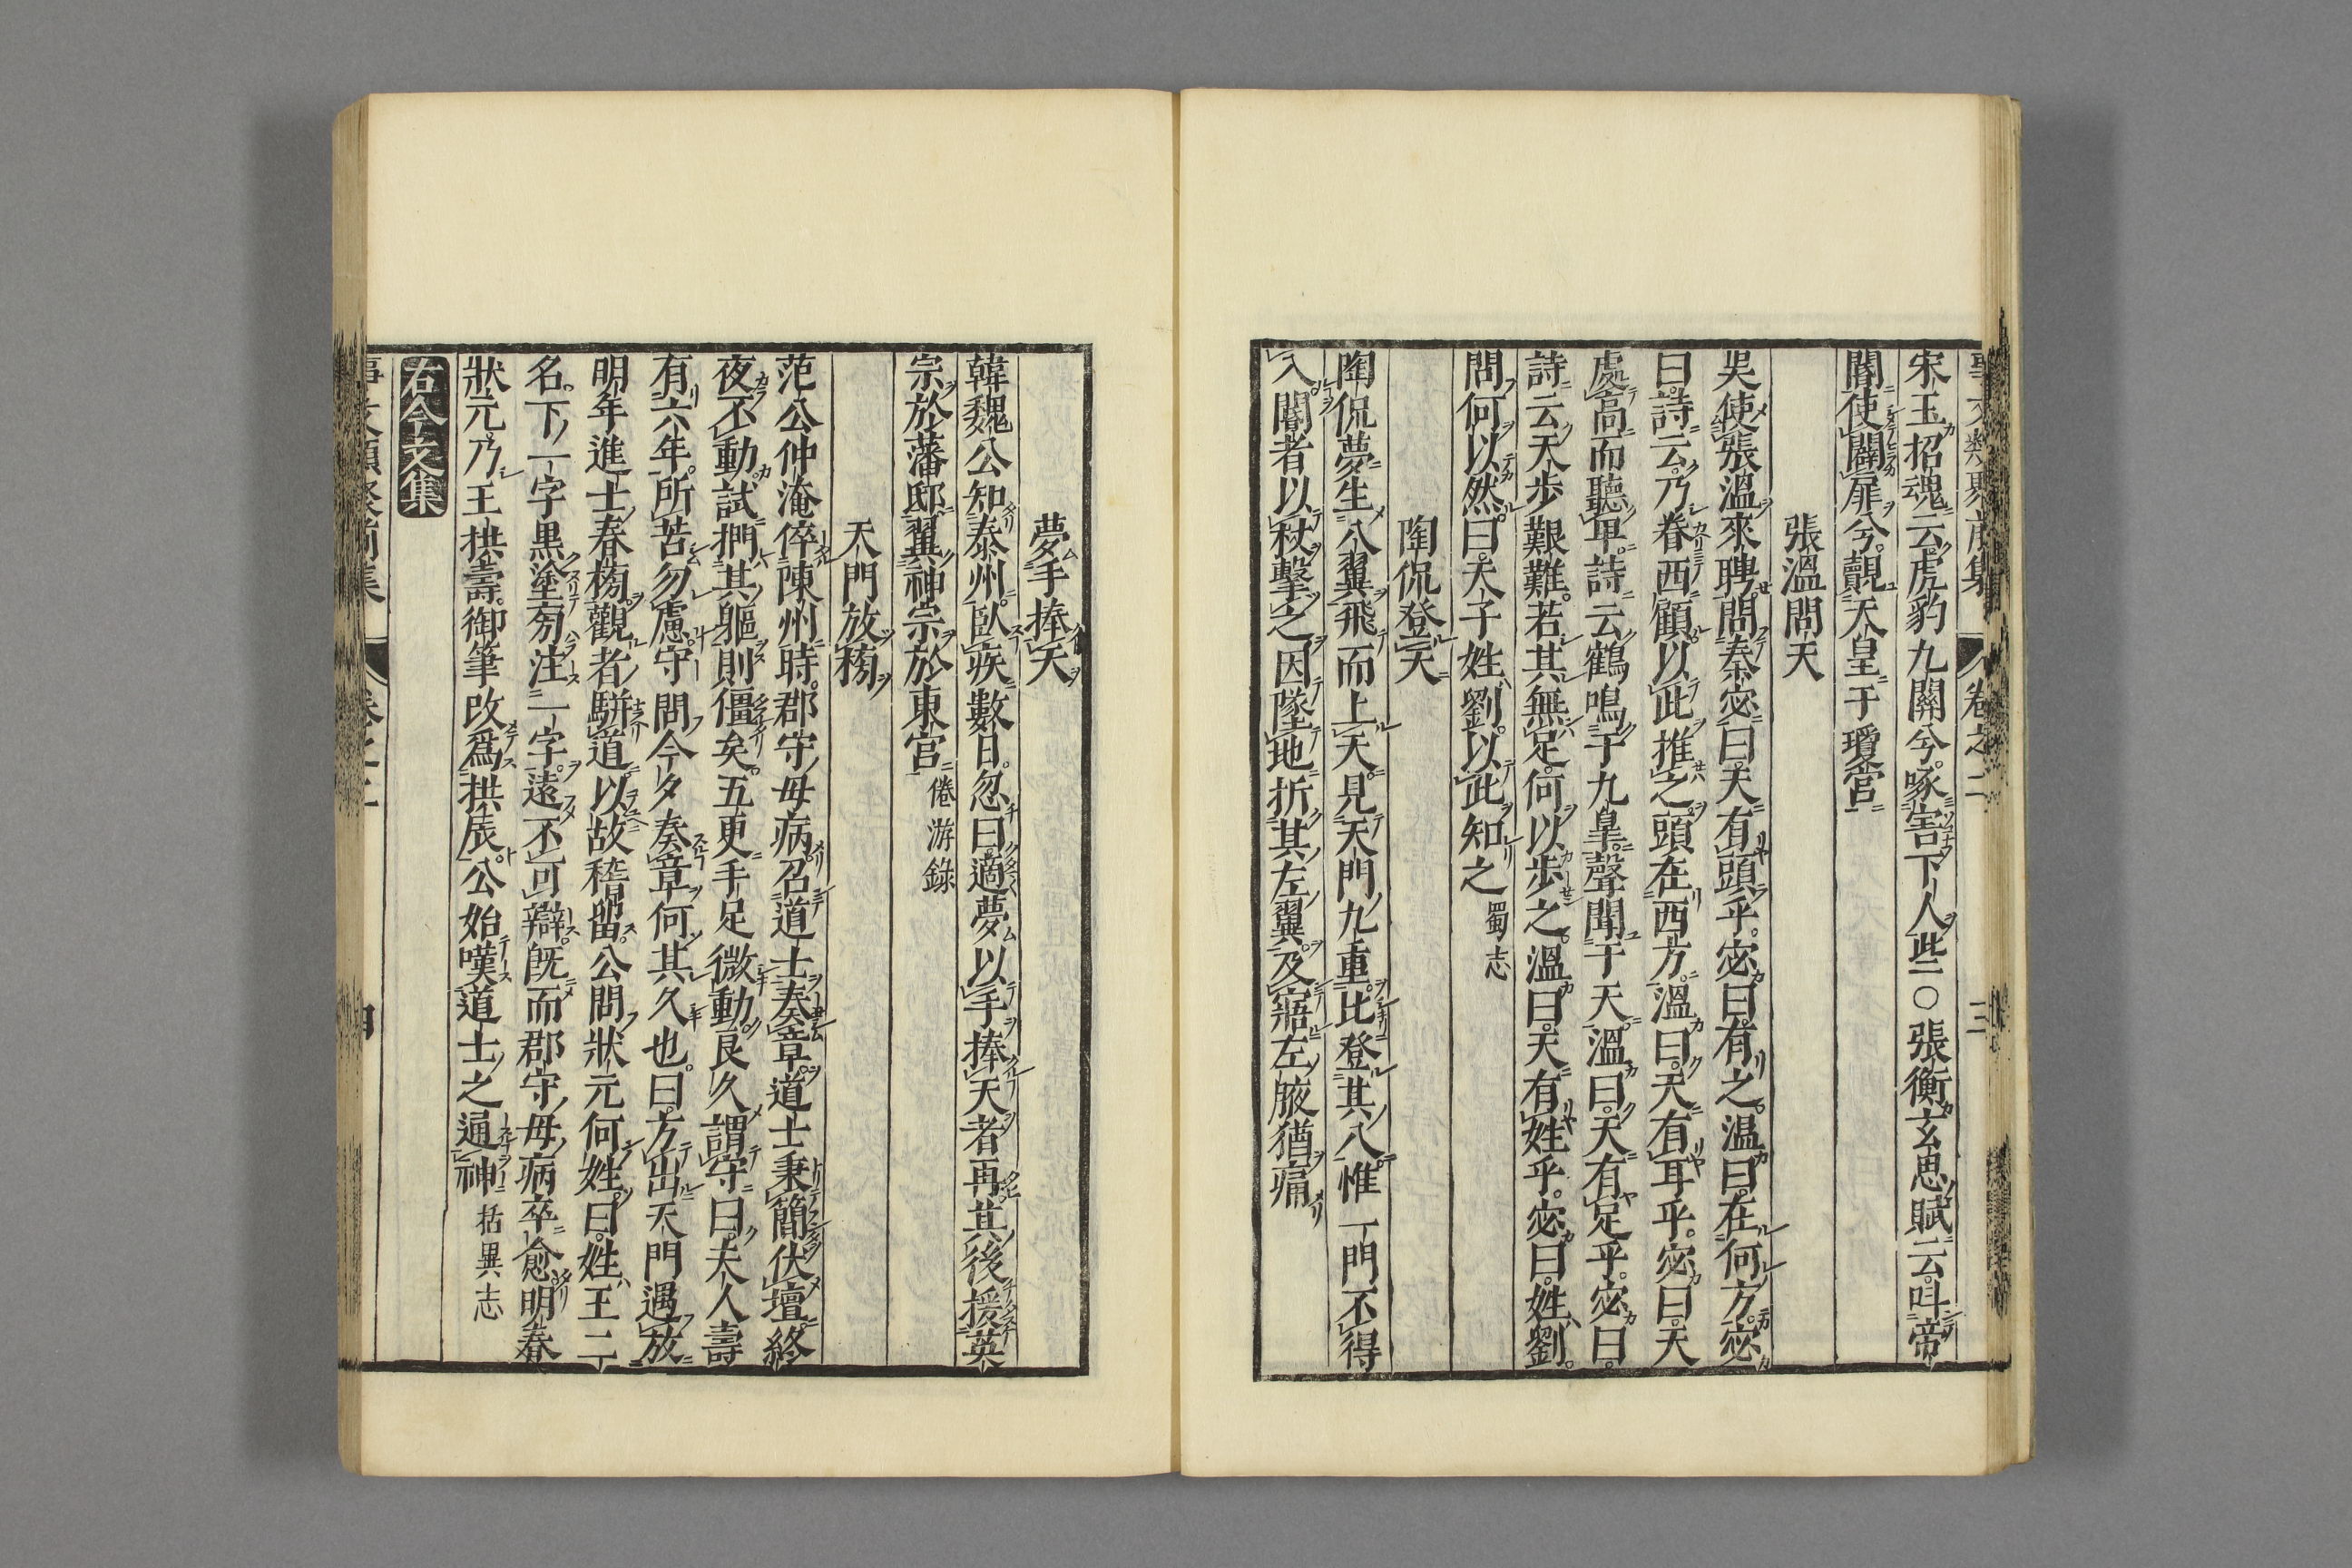 宋玉招魂云虎豹九關兮啄害下人些○張衡玄思賦云叫帝
閽使闢扉兮覿天皇于瓊宮
張溫問天
吳使張溫來聘問秦宓曰天有頭乎宓曰有之溫曰在何方宓
曰詩云乃眷西顧以此推之頭在西方溫曰天有耳乎宓曰天
處高而聽卑詩云鶴鳴于九皐聲聞于天溫曰天有足乎宓曰
詩云天步艱難若其無足何以步之溫曰天有姓乎宓曰姓劉
問何以然曰天子姓劉以此知之 蜀志
陶侃登天
陶侃夢生八翼飛而上天見天門九重比登其八惟一門不得
入閽者以杖擊之因墜地折其左翼及寤左腋猶痛
夢手捧天
韓魏公知泰州臥疾數日忽曰適夢以手捧天者再其後援英
宗於藩邸翼神宗於東宮 倦游錄
天門放榜
范公仲淹倅陳州時郡守母病召道士奏章道士秉簡伏壇終
夜不動試捫其軀則僵矣五更手足微動良久謂守曰夫人壽
有六年所苦勿慮守問今夕奏章何其久也曰方出天門遇放
明年進士春榜觀者駢道以故稽留公問狀元何姓曰姓王二
名下一字黒塗旁注一字遠不可辯既而郡守母病卒愈明春
狀元乃王拱壽御筆改爲拱辰公始嘆道士之通神 括異志
古今文集